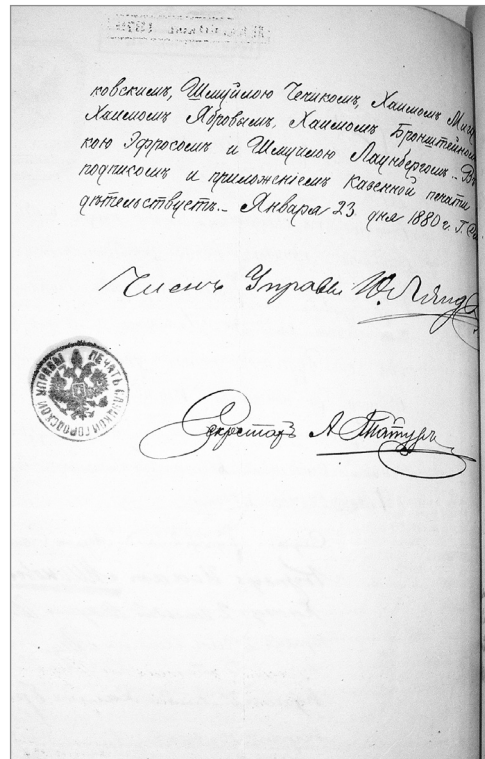 ковскимъ, Шмуйлою Чечикомъ, Хаимомъ
Хаимомъ Ябровымъ, Хаимомъ Бронштейномъ
кою Эфросомъ и Шмуилою Лаунбергомъ. –
подписомъ и приложеніемъ казенной печати
дѣтельствуетъ. – Января 23 дня 1880 г. Г.
Членъ Управы Ю.
ПЕЧАТЬ СЛУЦКОЙ ГОРОДСКОЙ УПРАВЫ
Секретарь А.